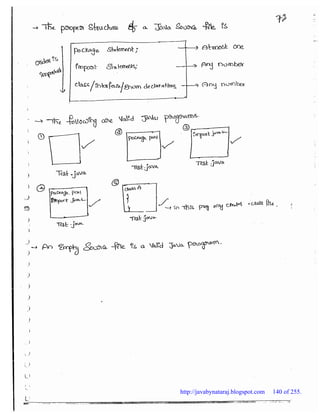 73
→ The proper Structure of a Java Source file is
Order is important
package Statement; → Atmost one
import Statements; → Any number
class/Interface/enum declarations → Any number
→ The following are Valid Java programs.
① ② ③
package pack1 import java.util
Test.java Test.java Test.java
④ ⑤
package pack1 class A
import java.util {
}
→ in this prog any
Test.java Test.java
→ An Empty Source file is a Valid Java program.
http://javabynataraj.blogspot.com 140 of 255.